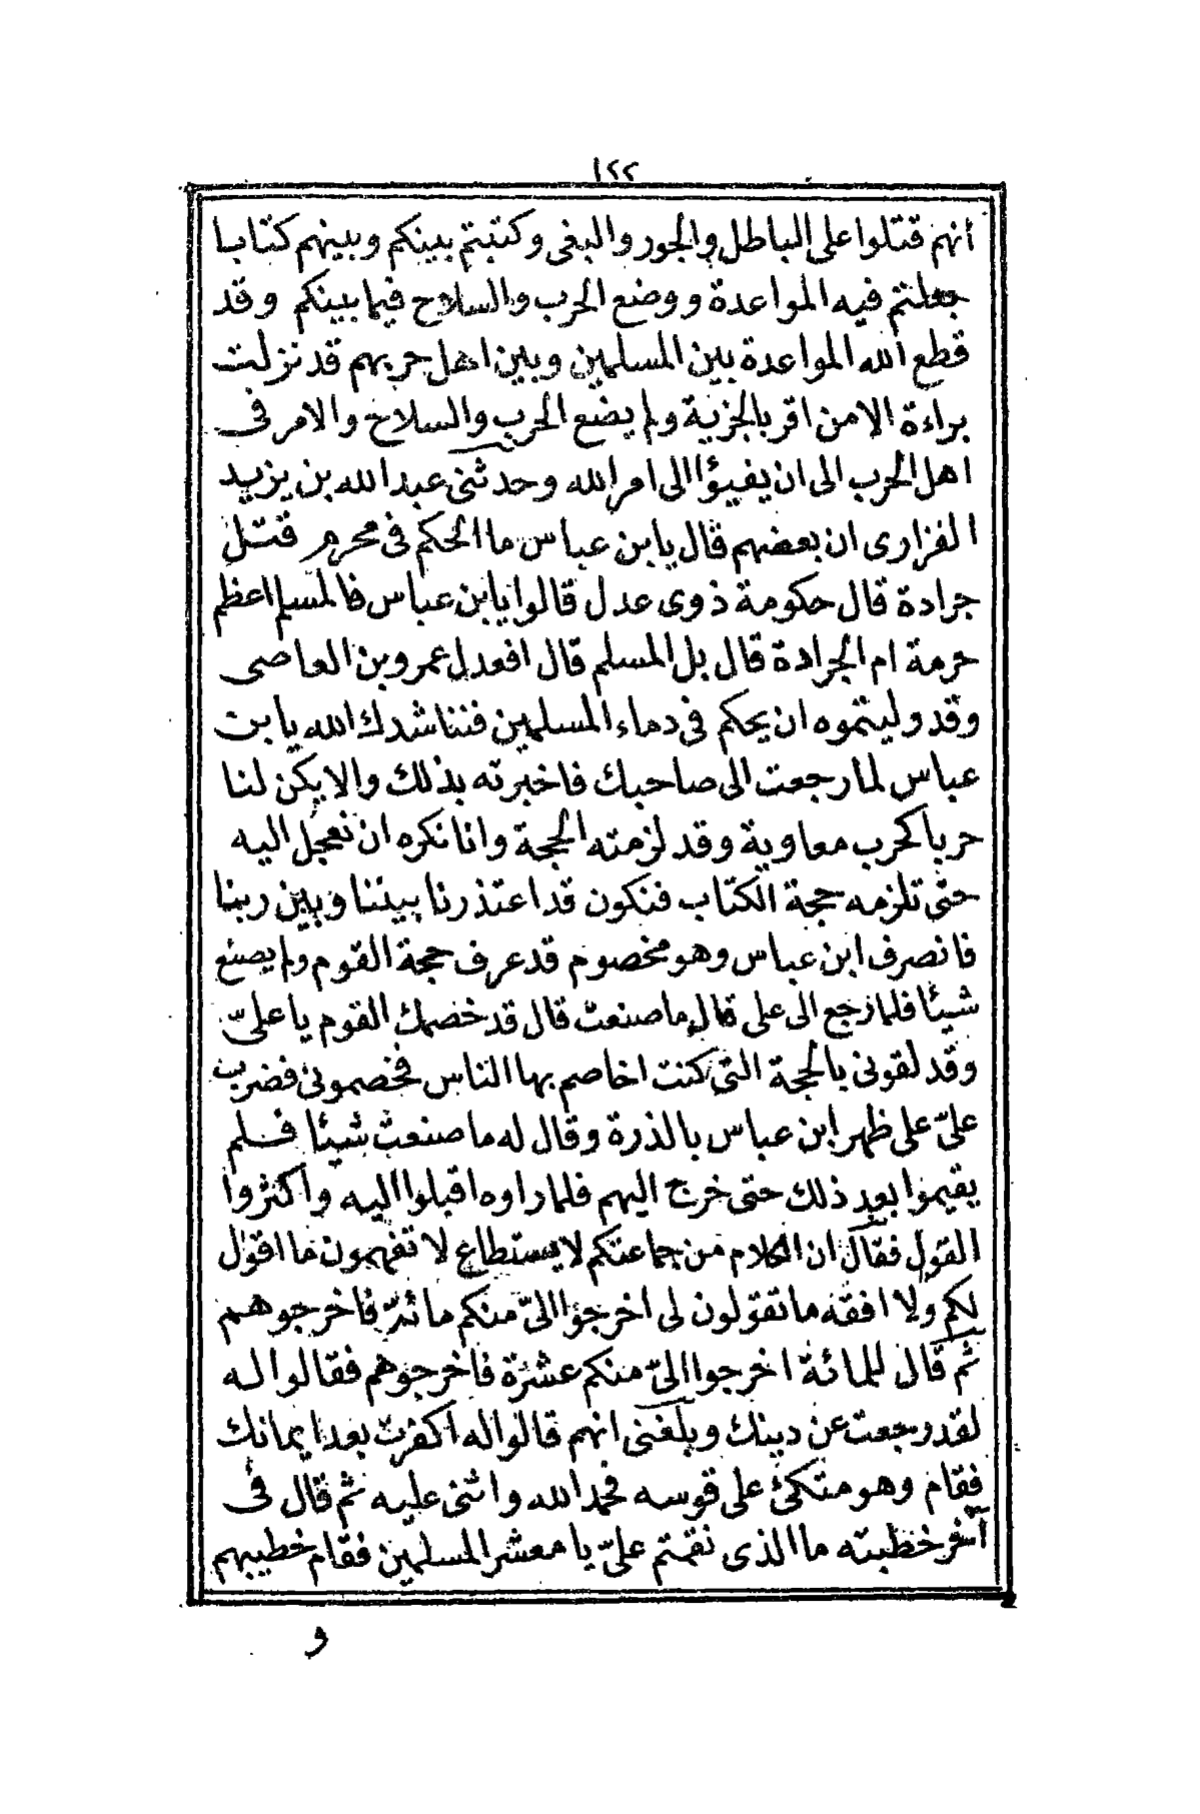 ١٢٢
انهم قتلوا على الباطل والجور والبغى وكتبتم بينكم وبينهم كتابا
جعلتم فيه المواعدة ووضع الحرب والسلاح فيما بينكم وقد
قطع الله المواعدة بين المسلمين وبين اهل حربهم قد نزلت
براءة الا من اقر بالجزية ولم يضع الحرب والسلاح والامر فى
اهل الحرب الى ان يفيؤا الى امر الله وحدثنى عبد الله بن يزيد
الفزارى ان بعضهم قال يا بن عباس ما الحكم فى محرم قتل
جرادة قال حكومة ذوى عدل قالوا يا بن عباس فالمسلم اعظم
حرمة ام الجرادة قال بل المسلم قال افعدل عمرو بن العاصى
وقد وليتموه ان يحكم فى دماء المسلمين فنناشدك الله يا بن
عباس لما رجعت الى صاحبك فاخبرته بذلك والا يكن لنا
حربا كحرب معاوية وقد لزمته الحجة وانا نكره ان نعجل اليه
حتى تلزمه حجة الكتاب فنكون قد اعتذرنا بيننا وبين ربنا
فانصرف ابن عباس وهو مخصوم قد عرف حجة القوم ولم يصنع
شيئا فلما رجع الى على قال ما صنعت قال قد خصمك القوم يا علىّ
وقد لقونى بالحجة التى كنت اخاصم بها الناس فخصمونى فضرب
علىّ على ظهر ابن عباس بالذرة وقال له ما صنعت شيئا فلم
يقيموا بعد ذلك حتى خرج اليهم فلما راوه اقبلوا اليه واكثروا
القول فقال ان الكلام من جماعتكم لا يستطاع لا تفهمون ما اقول
لكم ولا افقه ما تقولون لى اخرجوا الىّ منكم مائة فاخرجوهم
ثم قال للمائة اخرجوا الىّ منكم عشرة فاخرجوهم فقالوا له
لقد رجعت عن دينك وبلغنى انهم قالوا له اكفرت بعد ايمانك
فقام وهو متكئ على قوسه فحمد الله واثنى عليه ثم قال فى
آخر خطبته ما الذى نقمتم علىّ يا معشر المسلمين فقام خطيبهم
و